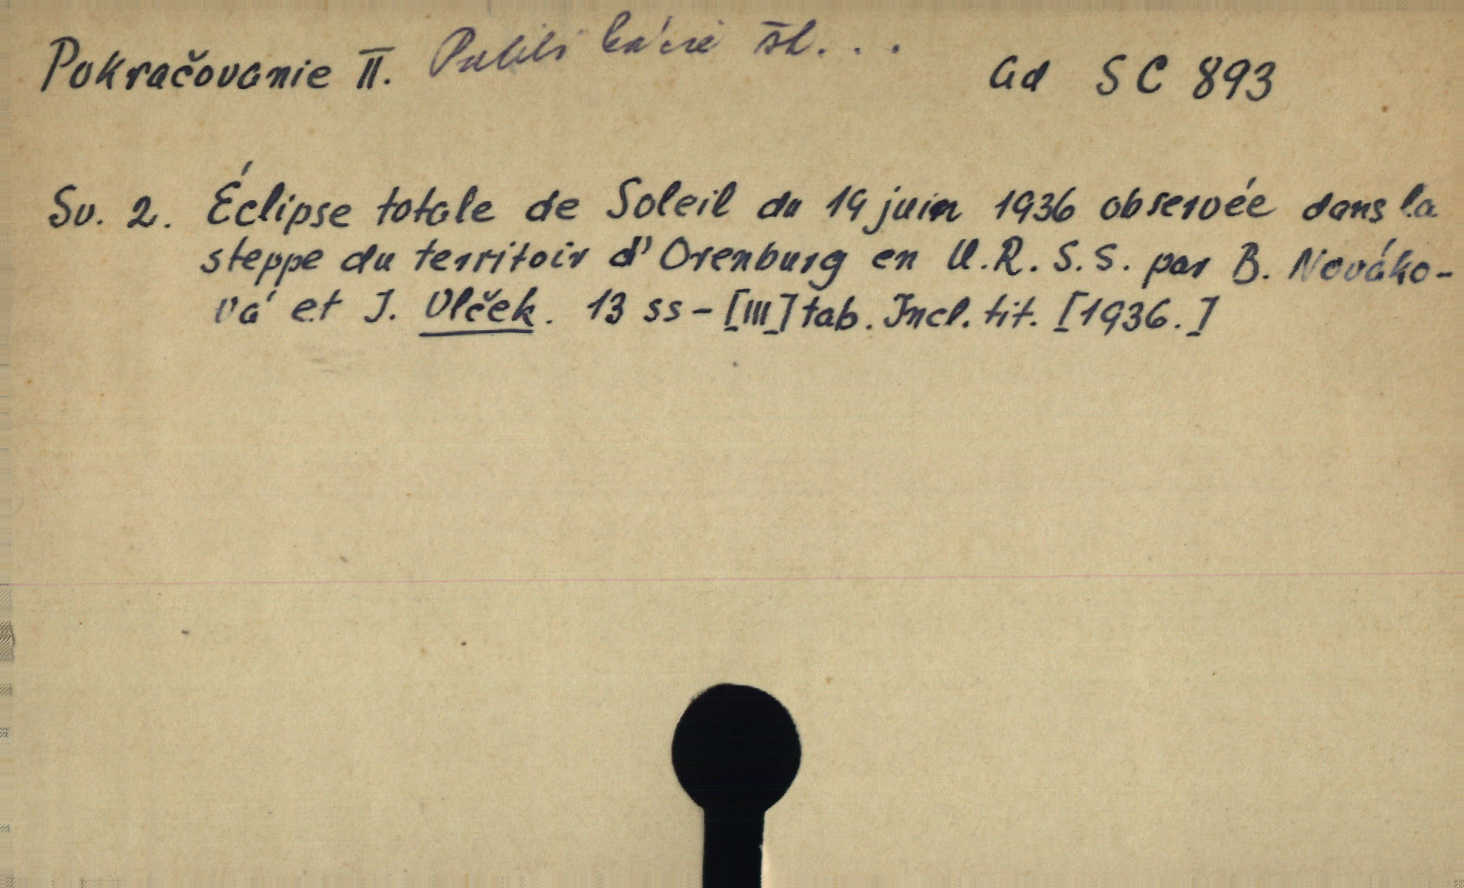 Pokračovanie II. Publikácie št. . . Ad SC 893
Sv. 2. Éclipse totale de Soleil du 19 juin 1936 observée dans la
steppe du territoir d'Orenburg en U.R.S.S. par B. Nováko-
vá et J. Vlček. 13 ss - [III] tab. Incl. tit. [1936.]